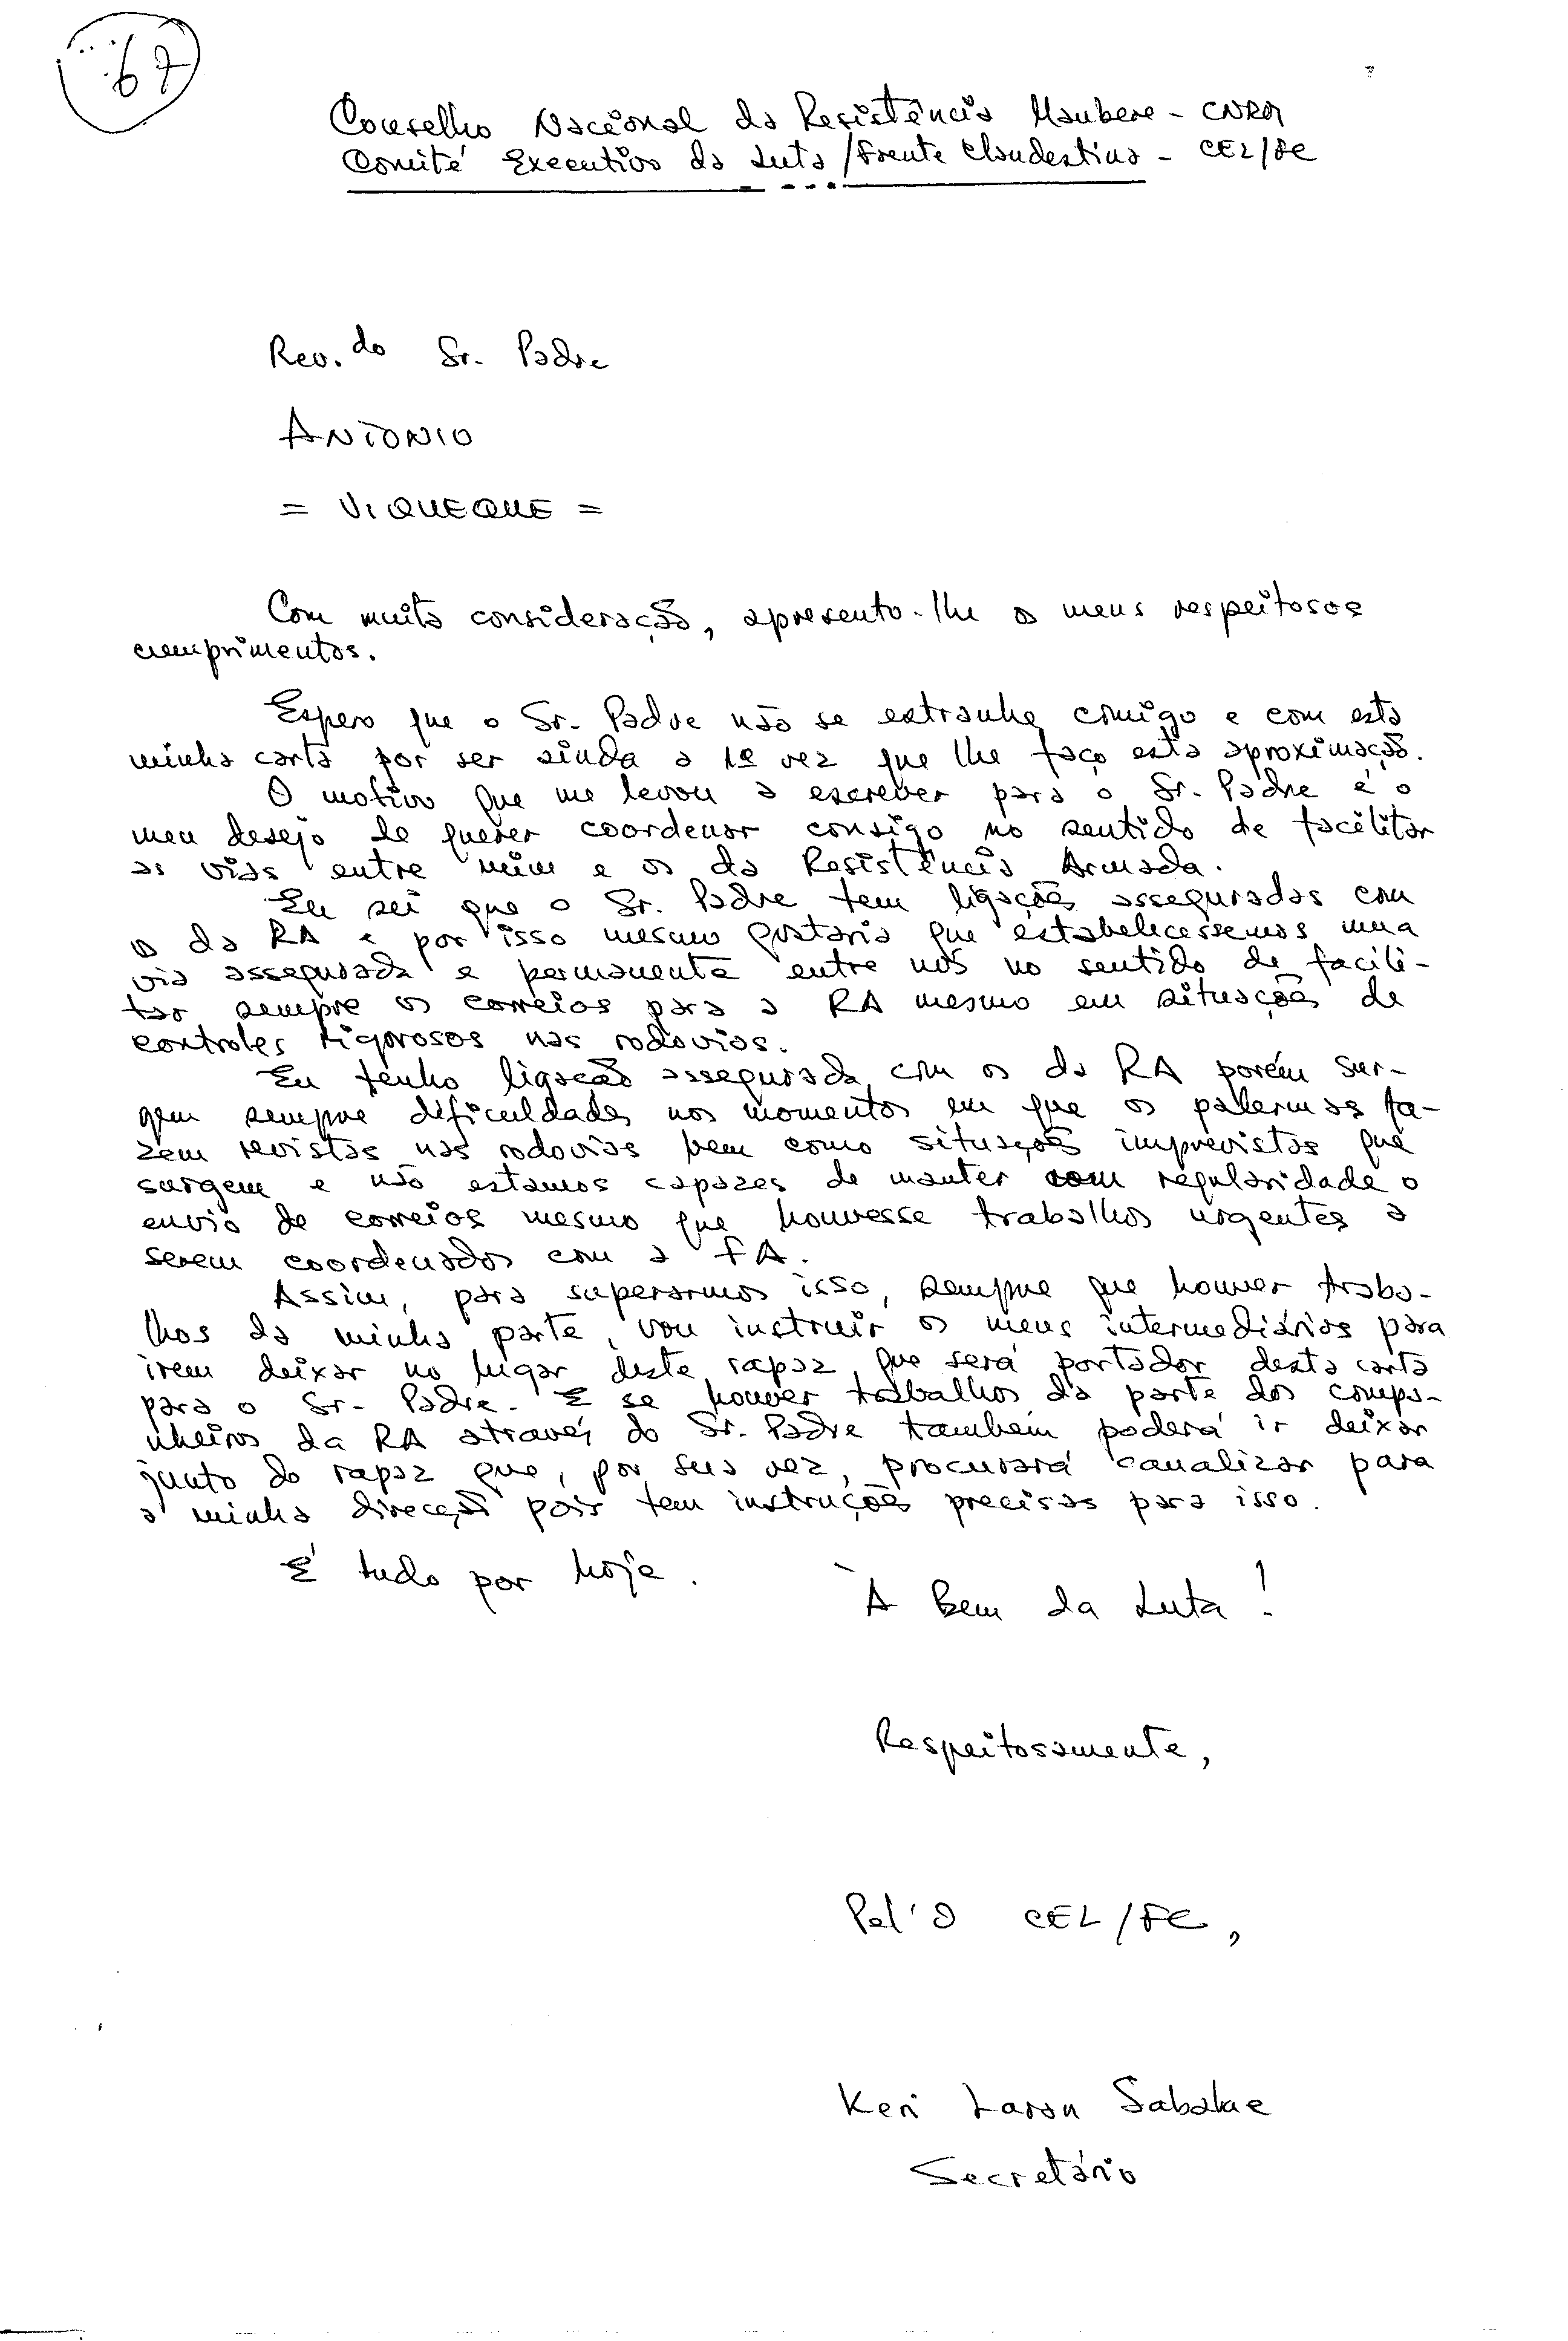 67
Conselho Nacional da Resistência Maubere - CNRM
Comité Executivo da Luta/Frente Clandestina - CEL/FC
Rev.do Sr. Padre
ANTONIO
= VIQUEQUE =
Com muita consideração, apresento-lhe os meus respeitosos
cumprimentos.
Espero que o Sr. Padre não se estranhe comigo e com esta
minha carta por ser ainda a 1ª vez que lhe faço esta aproximação.
O motivo que me levou a escrever para o Sr. Padre é o
meu desejo de querer coordenar consigo no sentido de facilitar
as vias entre mim e os da Resistência Armada.
Eu sei que o Sr. Padre tem ligações asseguradas com
os da RA e por isso mesmo gostaria que estabelecessemos uma
via assegurada e permanente entre nós no sentido de facili-
tar sempre os correios para a RA mesmo em situações de
controles rigorosos nas rodovias.
Eu tenho ligação assegurada com os da RA porém sur-
gem sempre dificuldades nos momentos em que os palermas fa-
zem revistas nas rodovias bem como situações imprevistas que
surgem e não estamos capazes de manter com regularidade o
envio de correios mesmo que houvesse trabalhos urgentes a
serem coordenados com a FA.
Assim, para superarmos isso, sempre que houver traba-
lhos da minha parte, vou instruir os meus intermediários para
irem deixar no lugar deste rapaz que será portador desta carta
para o Sr. Padre. E se houver trabalhos da parte dos compa-
nheiros da RA através do Sr. Padre também poderá ir deixar
junto do rapaz que, por sua vez, procurará canalizar para
a minha direcção pois tem instruções precisas para isso.
É tudo por hoje.
À Bem da Luta!
Respeitosamente,
Pel'O CEL/FC,
Keri Laran Sabalae
Secretário